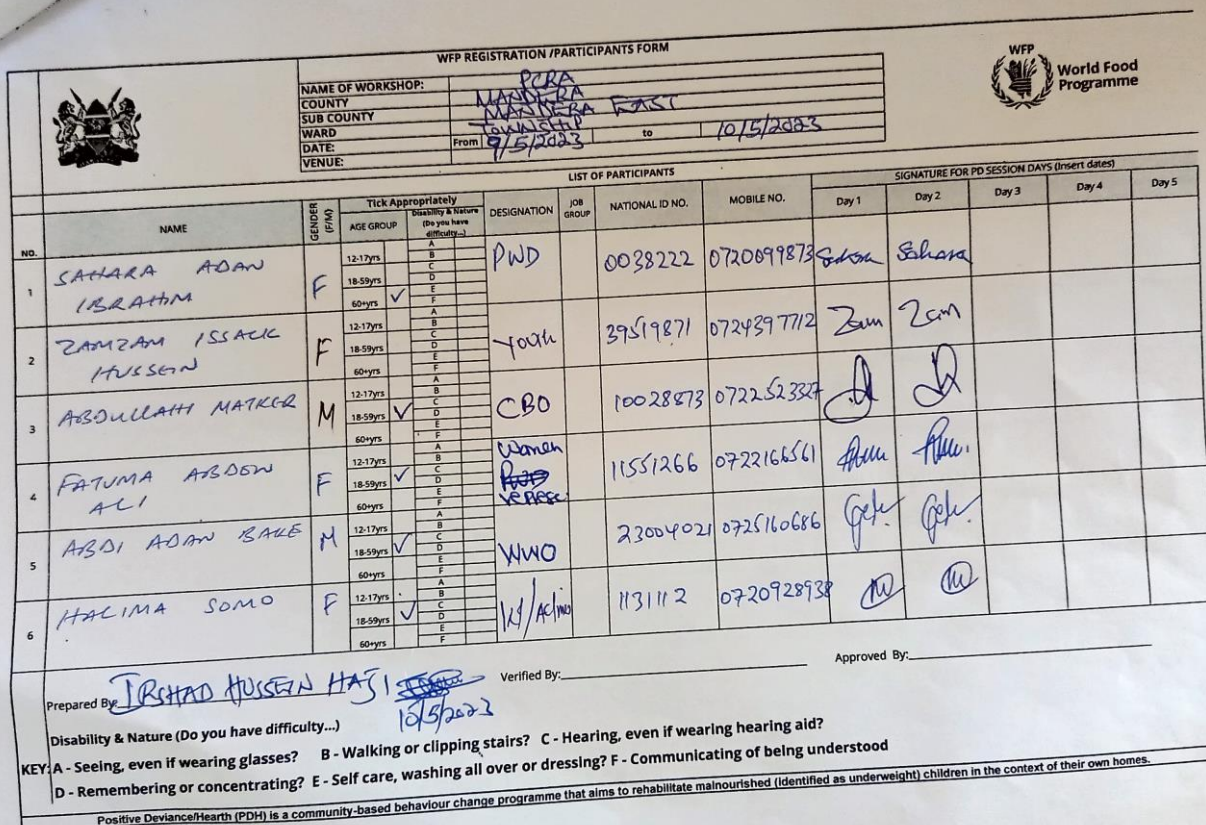 WFP REGISTRATION /PARTICIPANTS FORM
WFP
World Food
Programme
NAME OF WORKSHOP: PCRA
COUNTY MANDERA
SUB COUNTY MANDERA EAST
WARD TOWNSHIP
DATE: From 9/5/2023 to 10/5/2023
VENUE:
LIST OF PARTICIPANTS
SIGNATURE FOR PD SESSION DAYS (Insert dates)
NO. NAME GENDER (F/M) Tick Appropriately AGE GROUP Disability & Nature (Do you have difficulty...) DESIGNATION JOB GROUP NATIONAL ID NO. MOBILE NO. Day 1 Day 2 Day 3 Day 4 Day 5
1 SAHARA ADAN IBRAHIM F 12-17yrs 18-59yrs 60+yrs ✓ A B C D E F PWD 0038222 0720099873 Sahara Sahara
2 ZAMZAM ISSACK HUSSEIN F 12-17yrs 18-59yrs 60+yrs A B C D E F Youth 39519871 0724397712 Zam Zam
3 ABDULLAHI MATKER M 12-17yrs 18-59yrs ✓ 60+yrs A B C D E F CBO 10028873 0722523327
4 FATUMA ABDOW ALI F 12-17yrs 18-59yrs ✓ 60+yrs A B C D E F Women 11551266 0722166561
5 ABDI ADAN BAKE M 12-17yrs 18-59yrs ✓ 60+yrs A B C D E F WWO 23004021 0725160686
6 HALIMA SOMO F 12-17yrs 18-59yrs ✓ 60+yrs A B C D E F 1131112 0720928938
Prepared By: IRSHAD HUSSEIN HAJI Verified By: Approved By:
10/5/2023
Disability & Nature (Do you have difficulty...)
KEY: A - Seeing, even if wearing glasses? B - Walking or clipping stairs? C - Hearing, even if wearing hearing aid?
D - Remembering or concentrating? E - Self care, washing all over or dressing? F - Communicating of being understood
Positive Deviance/Hearth (PDH) is a community-based behaviour change programme that aims to rehabilitate malnourished (identified as underweight) children in the context of their own homes.